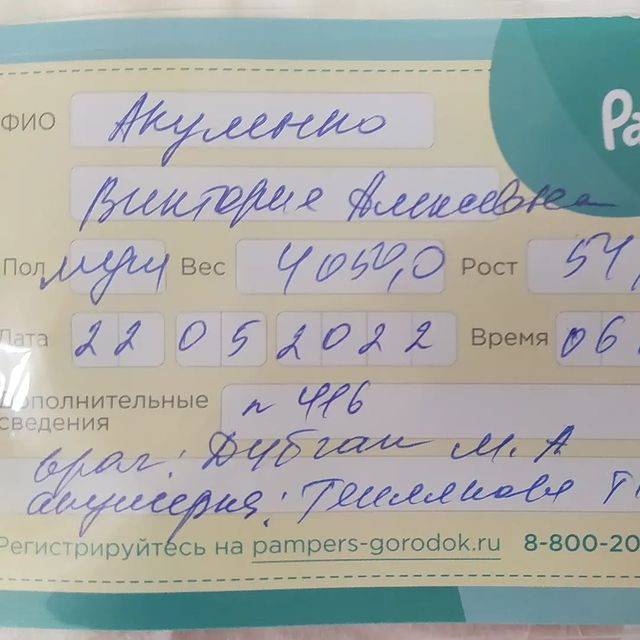 Pa
ФИО Акуленко
Виктория Алексеевна
Пол муж Вес 4050,0 Рост 54,
Дата 22 05 2022 Время 06
Дополнительные сведения п 416
врач: Дубган М. А
акушерка: Теплякова Т
Регистрируйтесь на pampers-gorodok.ru 8-800-20